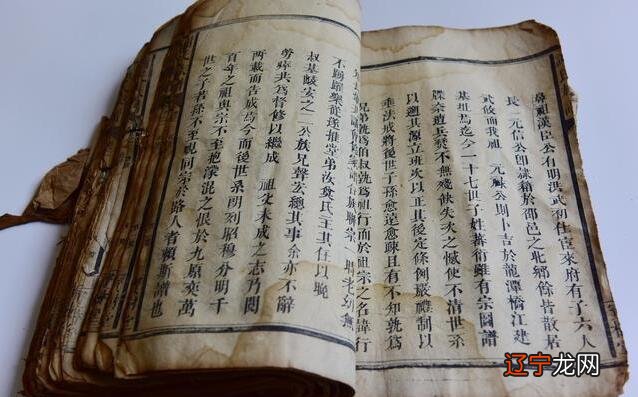 鼻祖漢臣公有明洪武初仕宦來府有子六人
長 元信公即隸籍於邵邑之北鄉餘皆散居
武攸而我祖 元祿公則卜吉於龍潭橋江建
基址焉迄今一十七世子姓蕃衍雖有宗圖譜
牒奈遭兵燹不無殘缺失次之憾使不清世系
以遡其源立班次以正其後定條例嚴禮制以
垂法戒將後世子孫愈遠愈踈且有不知孰為
兄弟孰為伯叔孰為祖行而於祖宗之名諱行
聯宗一時老幼無
不踴躍樂從遂推堂弟汝奠氏主其任以晚
叔基峻安之二公族兄聲安總其事余亦不辭
勞瘁共為督修以繼成 祖文未成之志乃閱
兩載而告成焉今而後世系明列昭穆分明千
百年之祖與宗不至抱濛混之恨於九原奕萬
世之子若孫不至視同宗於路人者賴斯譜也
辽宁龙网